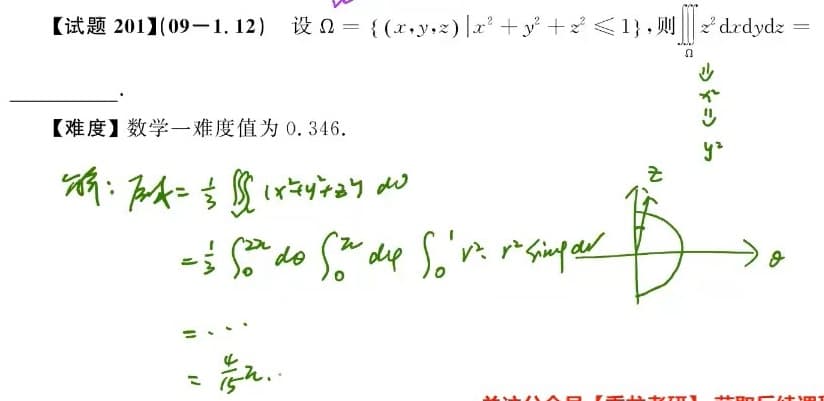 【试题 201】(09—1.12) 设 Ω = {(x,y,z)|x² + y² + z² ≤ 1},则∭_Ω z²dxdydz =
________.
⇓
x²
⇓
【难度】数学一难度值为 0.346.
y²
解: 原式 = 1/3 ∭ (x²+y²+z²) dv
z
= 1/3 ∫₀^{2π} dθ ∫₀^π dφ ∫₀¹ r²· r² sinφ dr
θ
= ...
= 4/15 π.